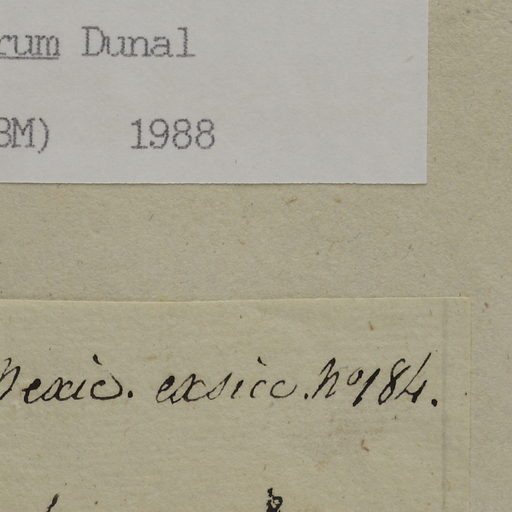 rum Dunal
BM) 1988
Mexic. exsicc. No 184.